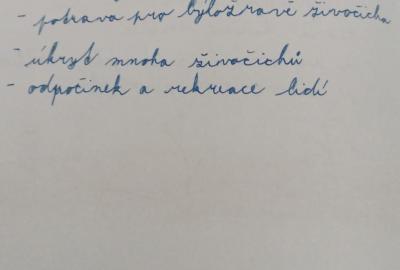 - potrava pro býložravé živočichy
- úkryt mnoha živočichů
- odpočinek a rekreace lidí